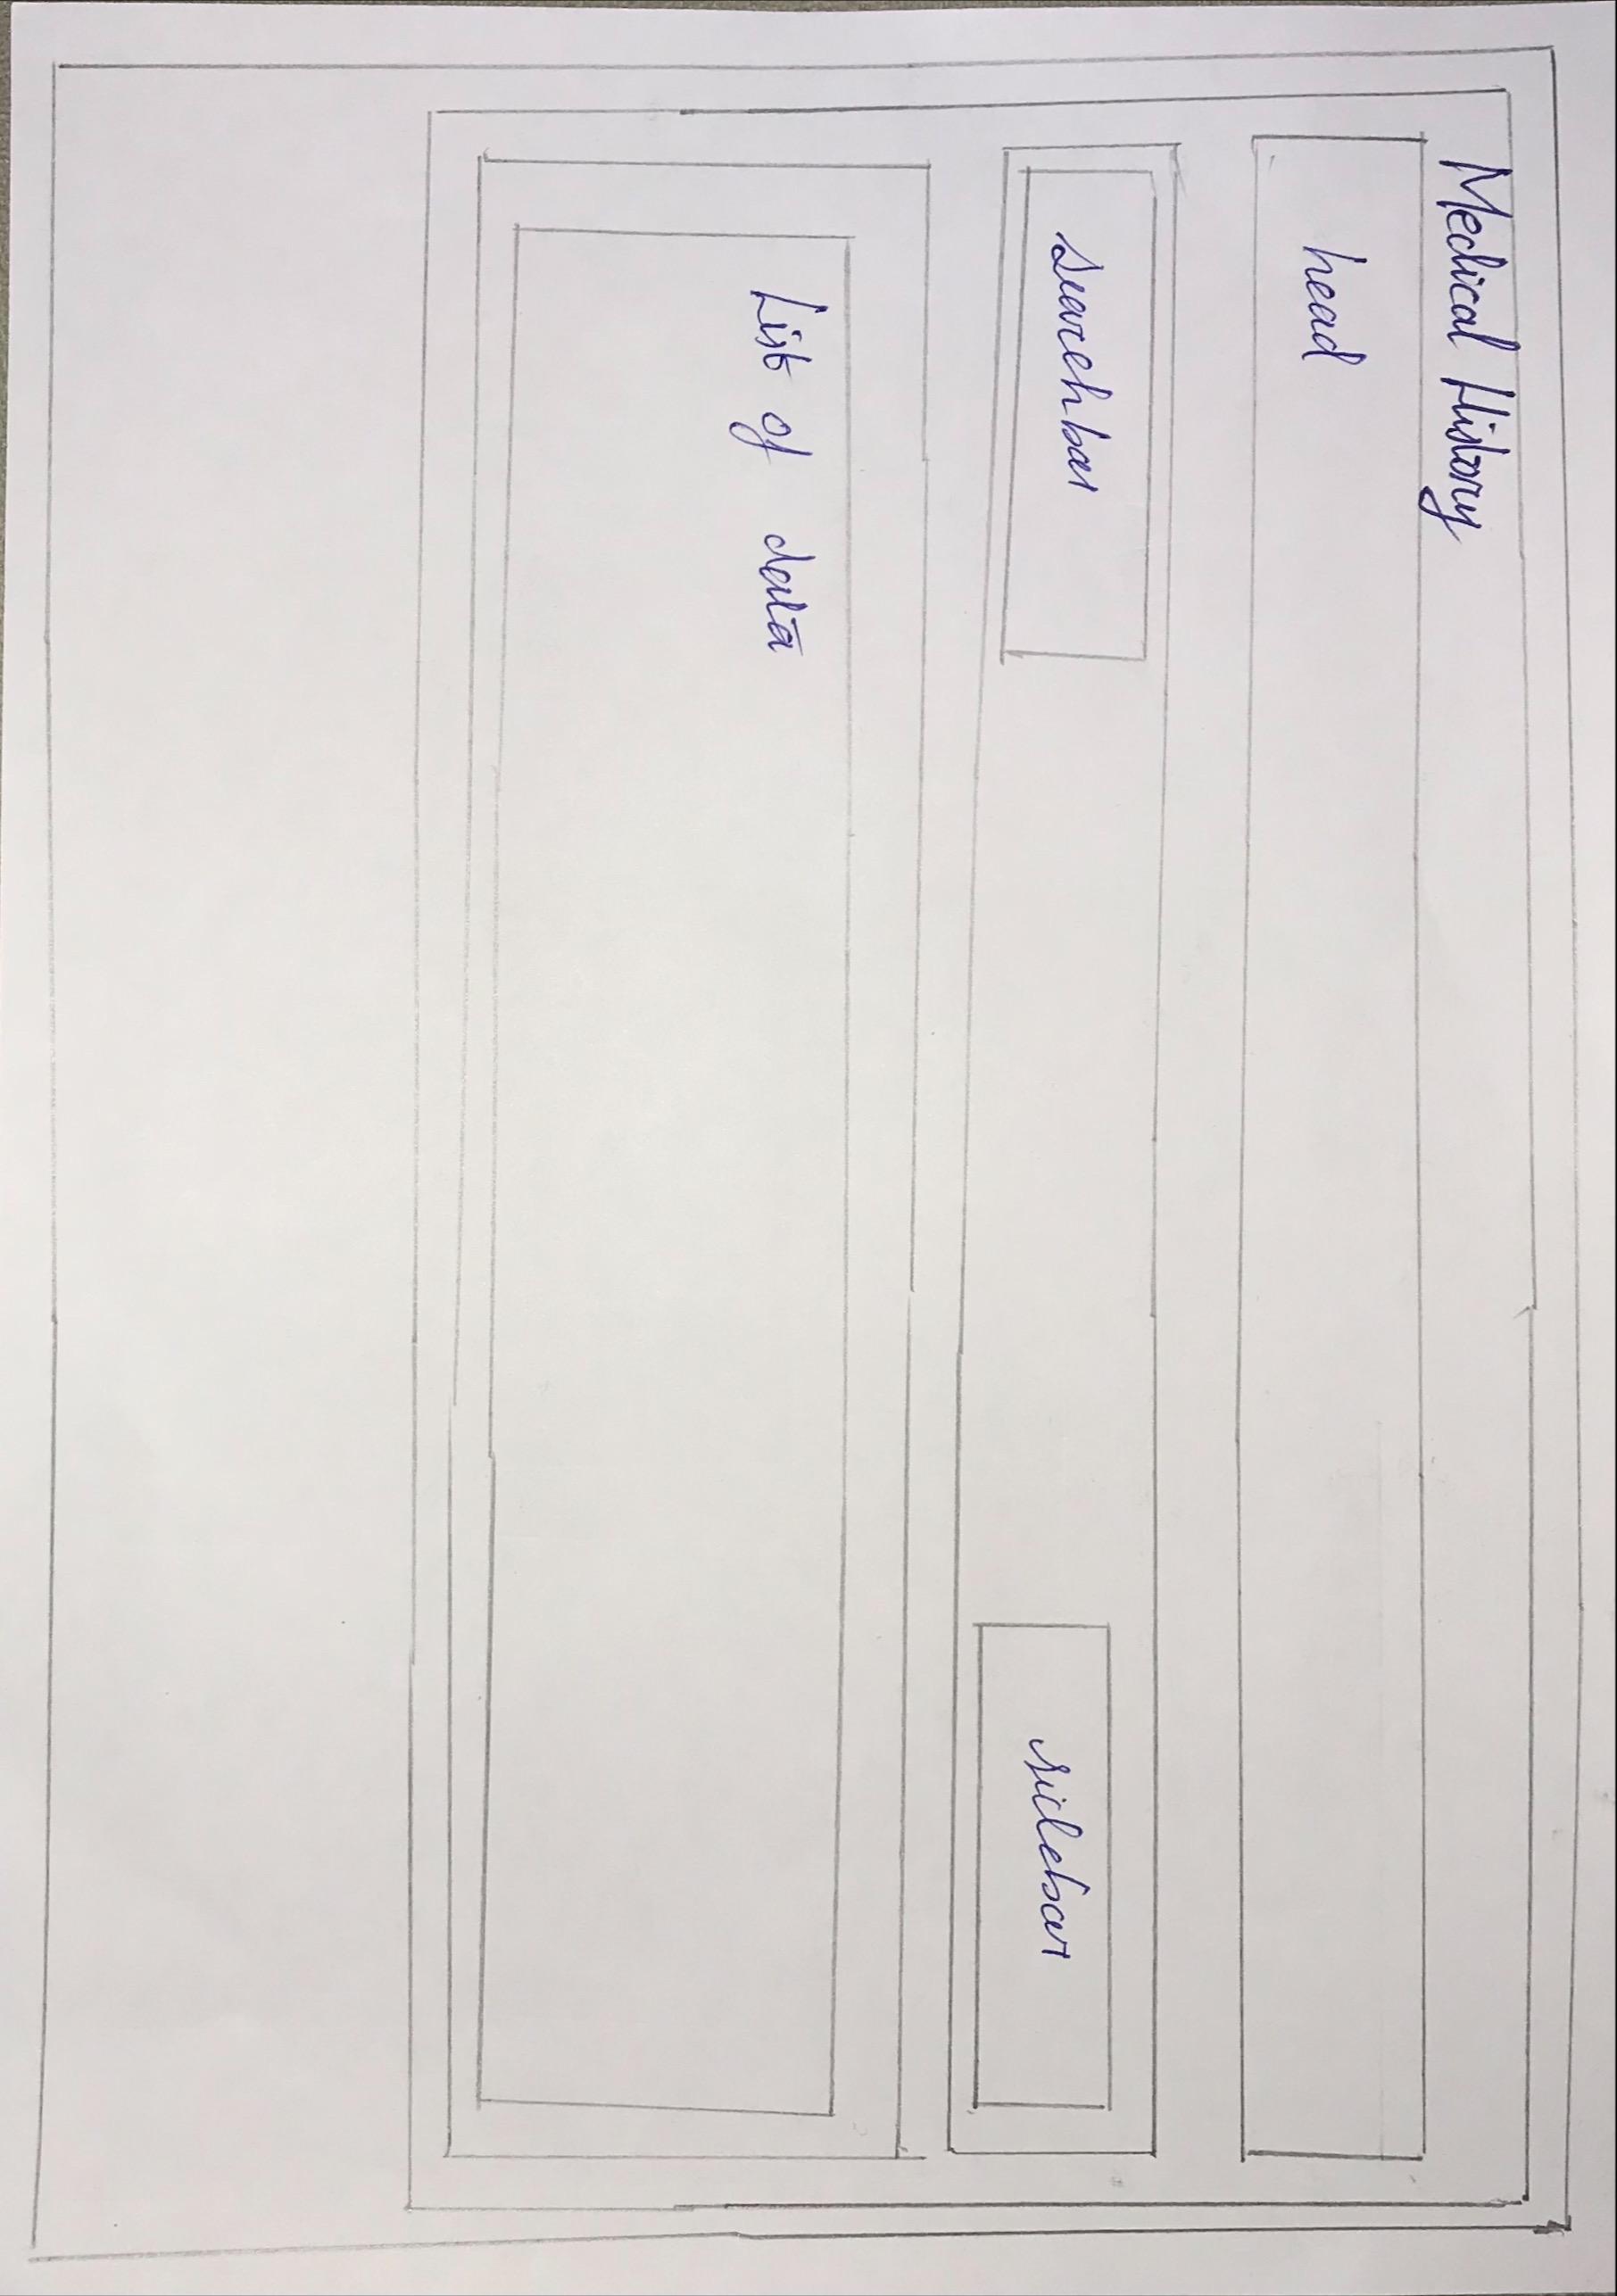 Medical History
head
searchbar
sidebar
List of data